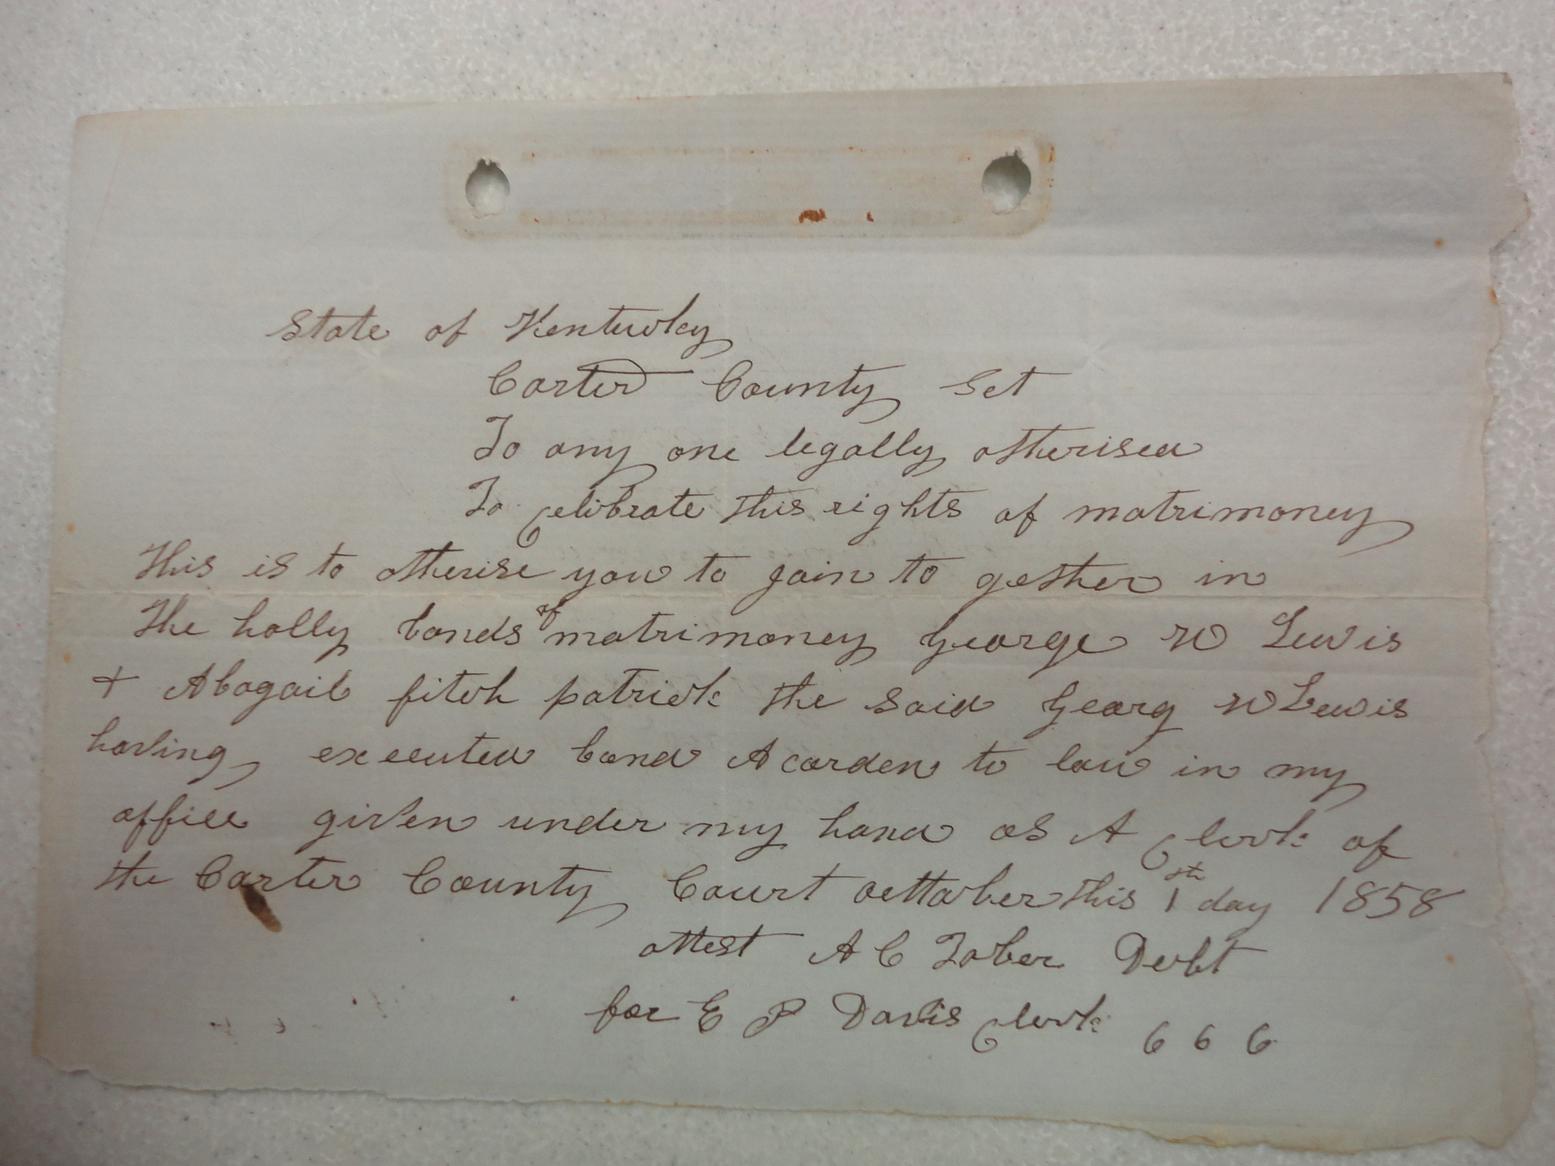 State of Kentucky
Carter County Sct
To any one legally otherised
To Celibrate this rights of matrimoney
This is to otherise you to join to gether in
the holly bonds of matrimoney George W Lewis
+ Abagail fitch patrick the said Georg W Lewis
having executed bond Acorden to law in my
office given under my hand as A Clerk of
the Carter County Court October this 1st day 1858
attest A C Tober Debt
for E P Davis Clerk C C C